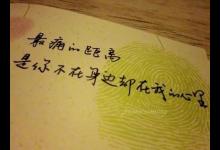 最痛的距离
是你不在身边却在我的心里